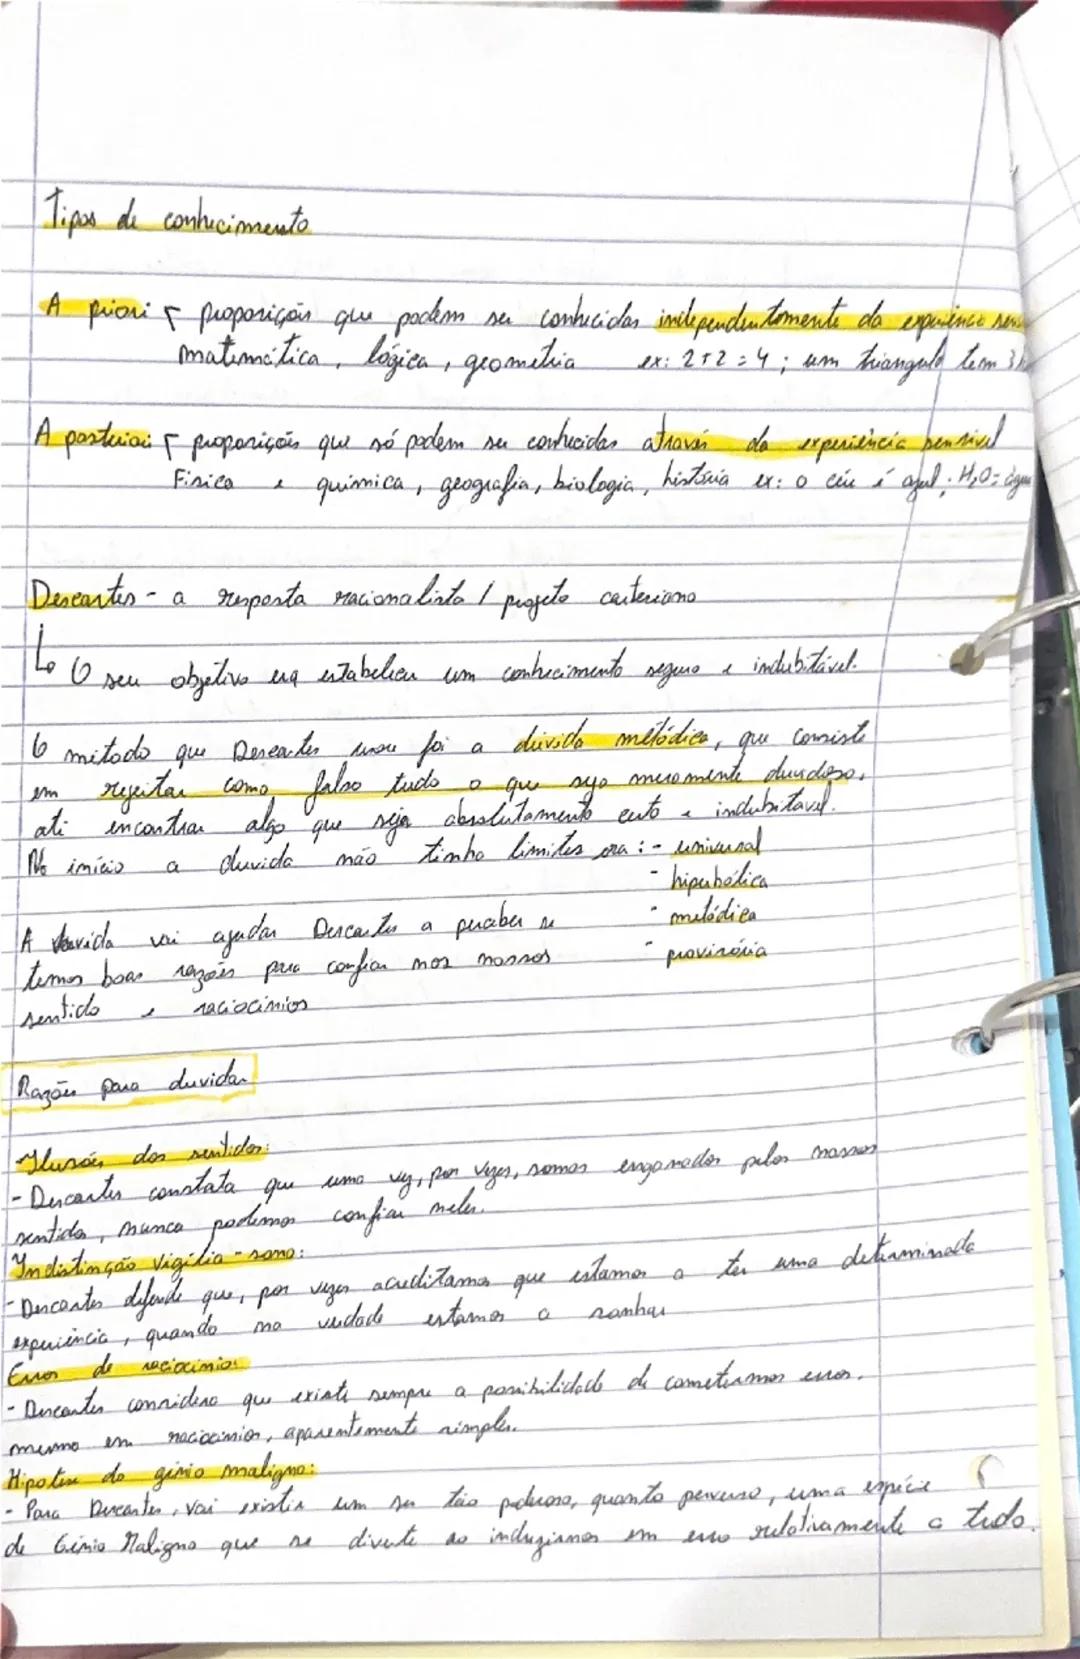 Tipos de conhecimento
A priori → proposições que podem ser conhecidas independentemente da experiência
matemática, lógica, geometria ex: 2+2=4; um triangulo tem 3
A posteriori → proposições que só podem ser conhecidas através da experiência sensível
Física e química, geografia, biologia, história ex: o céu é azul; H₂O=água
Descartes - a resposta racionalista / projeto carteriano
↳ O seu objetivo era estabelecer um conhecimento seguro e indubitável.
O método que Descartes usou foi a dúvida metódica, que consiste
em rejeitar como falso tudo o que seja meramente duvidoso,
até encontrar algo que seja absolutamente certo e indubitavel.
No início a duvida não tinha limites era: - universal
- hiperbólica
- metódica
- provisória
A duvida vai ajudar Descartes a perceber se
temos boas razões para confiar nos nossos
sentido e raciocinios
Razões para duvidar
Ilusões dos sentidos:
- Descartes constata que uma vez, por vezes, somos enganados pelos nossos
sentidos, nunca podemos confiar neles.
Indistinção Vigília-sono:
- Descartes defende que, por vezes acreditamos que estamos a ter uma determinada
experiência, quando na verdade estamos a sonhar
Erros de raciocinio:
- Descartes considera que existe sempre a possibilidade de cometermos erros,
mesmo em raciocinios, aparentemente simples.
Hipotese do génio maligno:
- Para Descartes, vai existir um ser tão poderoso, quanto perverso, uma espécie
de Génio Maligno que se diverte ao induzirmos em erro relativamente a tudo.